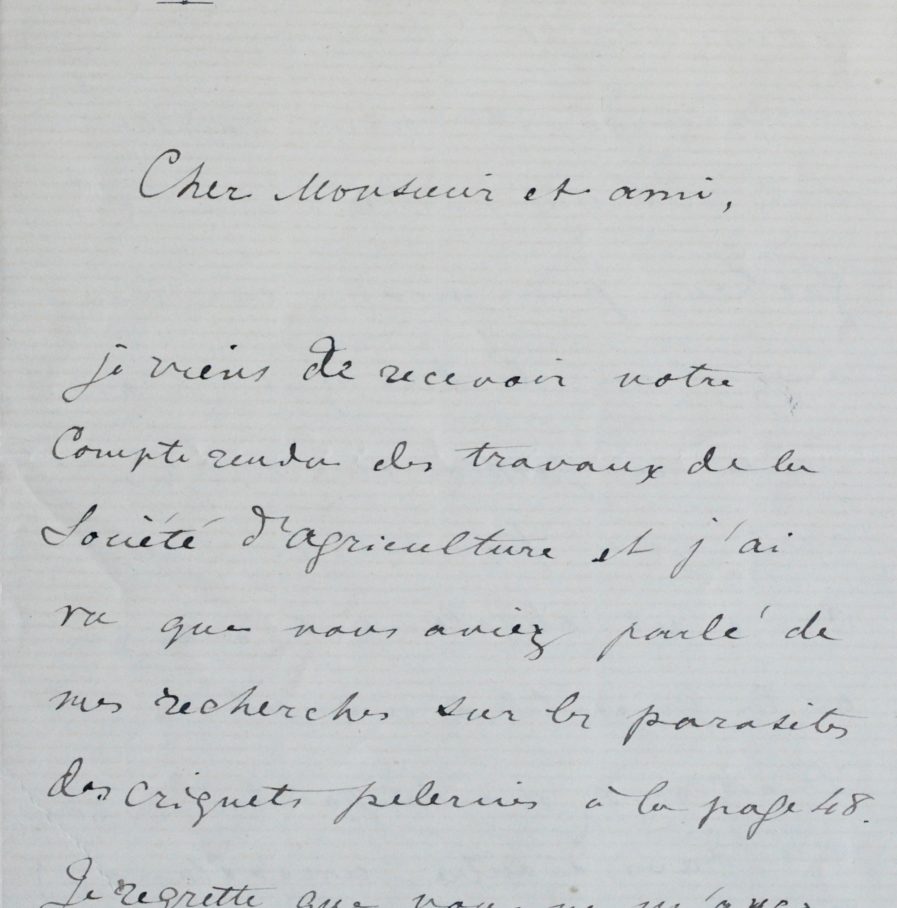 Cher Monsieur et ami,
je viens de recevoir votre
Compte rendu des travaux de la
Société d'agriculture et j'ai
vu que vous aviez parlé de
mes recherches sur les parasites
des criquets pelerins à la page 48.
Je regrette que vous ne m'ayez